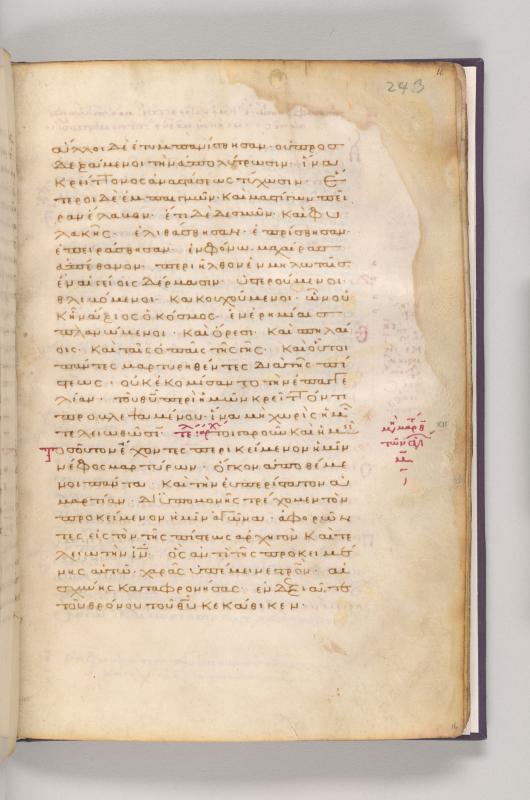 243
ἄλλοι δὲ ἐτυμπανίσθησαν· οὐ προσ
δεξάμενοι τὴν ἀπολύτρωσιν· ἵνα
κρείττονος ἀναστάσεως τύχωσιν· ἕ
τεροι δὲ ἐμπαιγμῶν· καὶ μαστίγων πεῖ
ραν ἔλαβον· ἔτι δὲ δεσμῶν· καὶ φυ
λακῆς· ἐλιθάσθησαν· ἐπρίσθησαν·
ἐπειράσθησαν· ἐν φόνω μαχαίρας
ἀπέθανον· περιῆλθον ἐν μηλωταῖς·
ἐν αἰγείοις δέρμασιν· ὑστερούμενοι·
θλιβόμενοι· κακουχούμενοι· ὧν οὐκ
ἦν ἄξιος ὁ κόσμος· ἐν ἐρημίαις
πλανώμενοι· καὶ ὄρεσι· καὶ σπηλαί
οις· καὶ ταῖς ὀπαῖς τῆς γῆς· καὶ οὗτοι
πάντες μαρτυρηθέντες διὰ τῆς πί
στεως· οὐκ ἐκομίσαντο τὴν ἐπαγγε
λίαν· τοῦ θῦ περὶ ἡμῶν κρεῖττόν τι
προβλεψαμένου· ἵνα μὴ χωρὶς ἡμῶ
τελειωθῶσι· τε αρχ τοιγαροῦν καὶ ἡμεῖς
τοσοῦτον ἔχοντες περικείμενον ἡμῖν
νέφος μαρτύρων· ὄγκον ἀποθέμε
νοι πάντα· καὶ τὴν εὐπερίστατον ἁ
μαρτίαν· δι ὑπομονῆς τρέχομεν τὸν
προκείμενον ἡμῖν ἀγῶνα· ἀφορῶν
τες εἰς τὸν τῆς πίστεως ἀρχηγὸν καὶ τε
λειωτὴν ιν· ὃς ἀντὶ τῆς προκειμέ
νης αὐτῶ χαρᾶς ὑπέμεινε στρον· αἰ
σχύνης καταφρονήσας· ἐν δεξιᾶ τε
τοῦ θρόνου τοῦ θυ κεκάθικεν·
XII